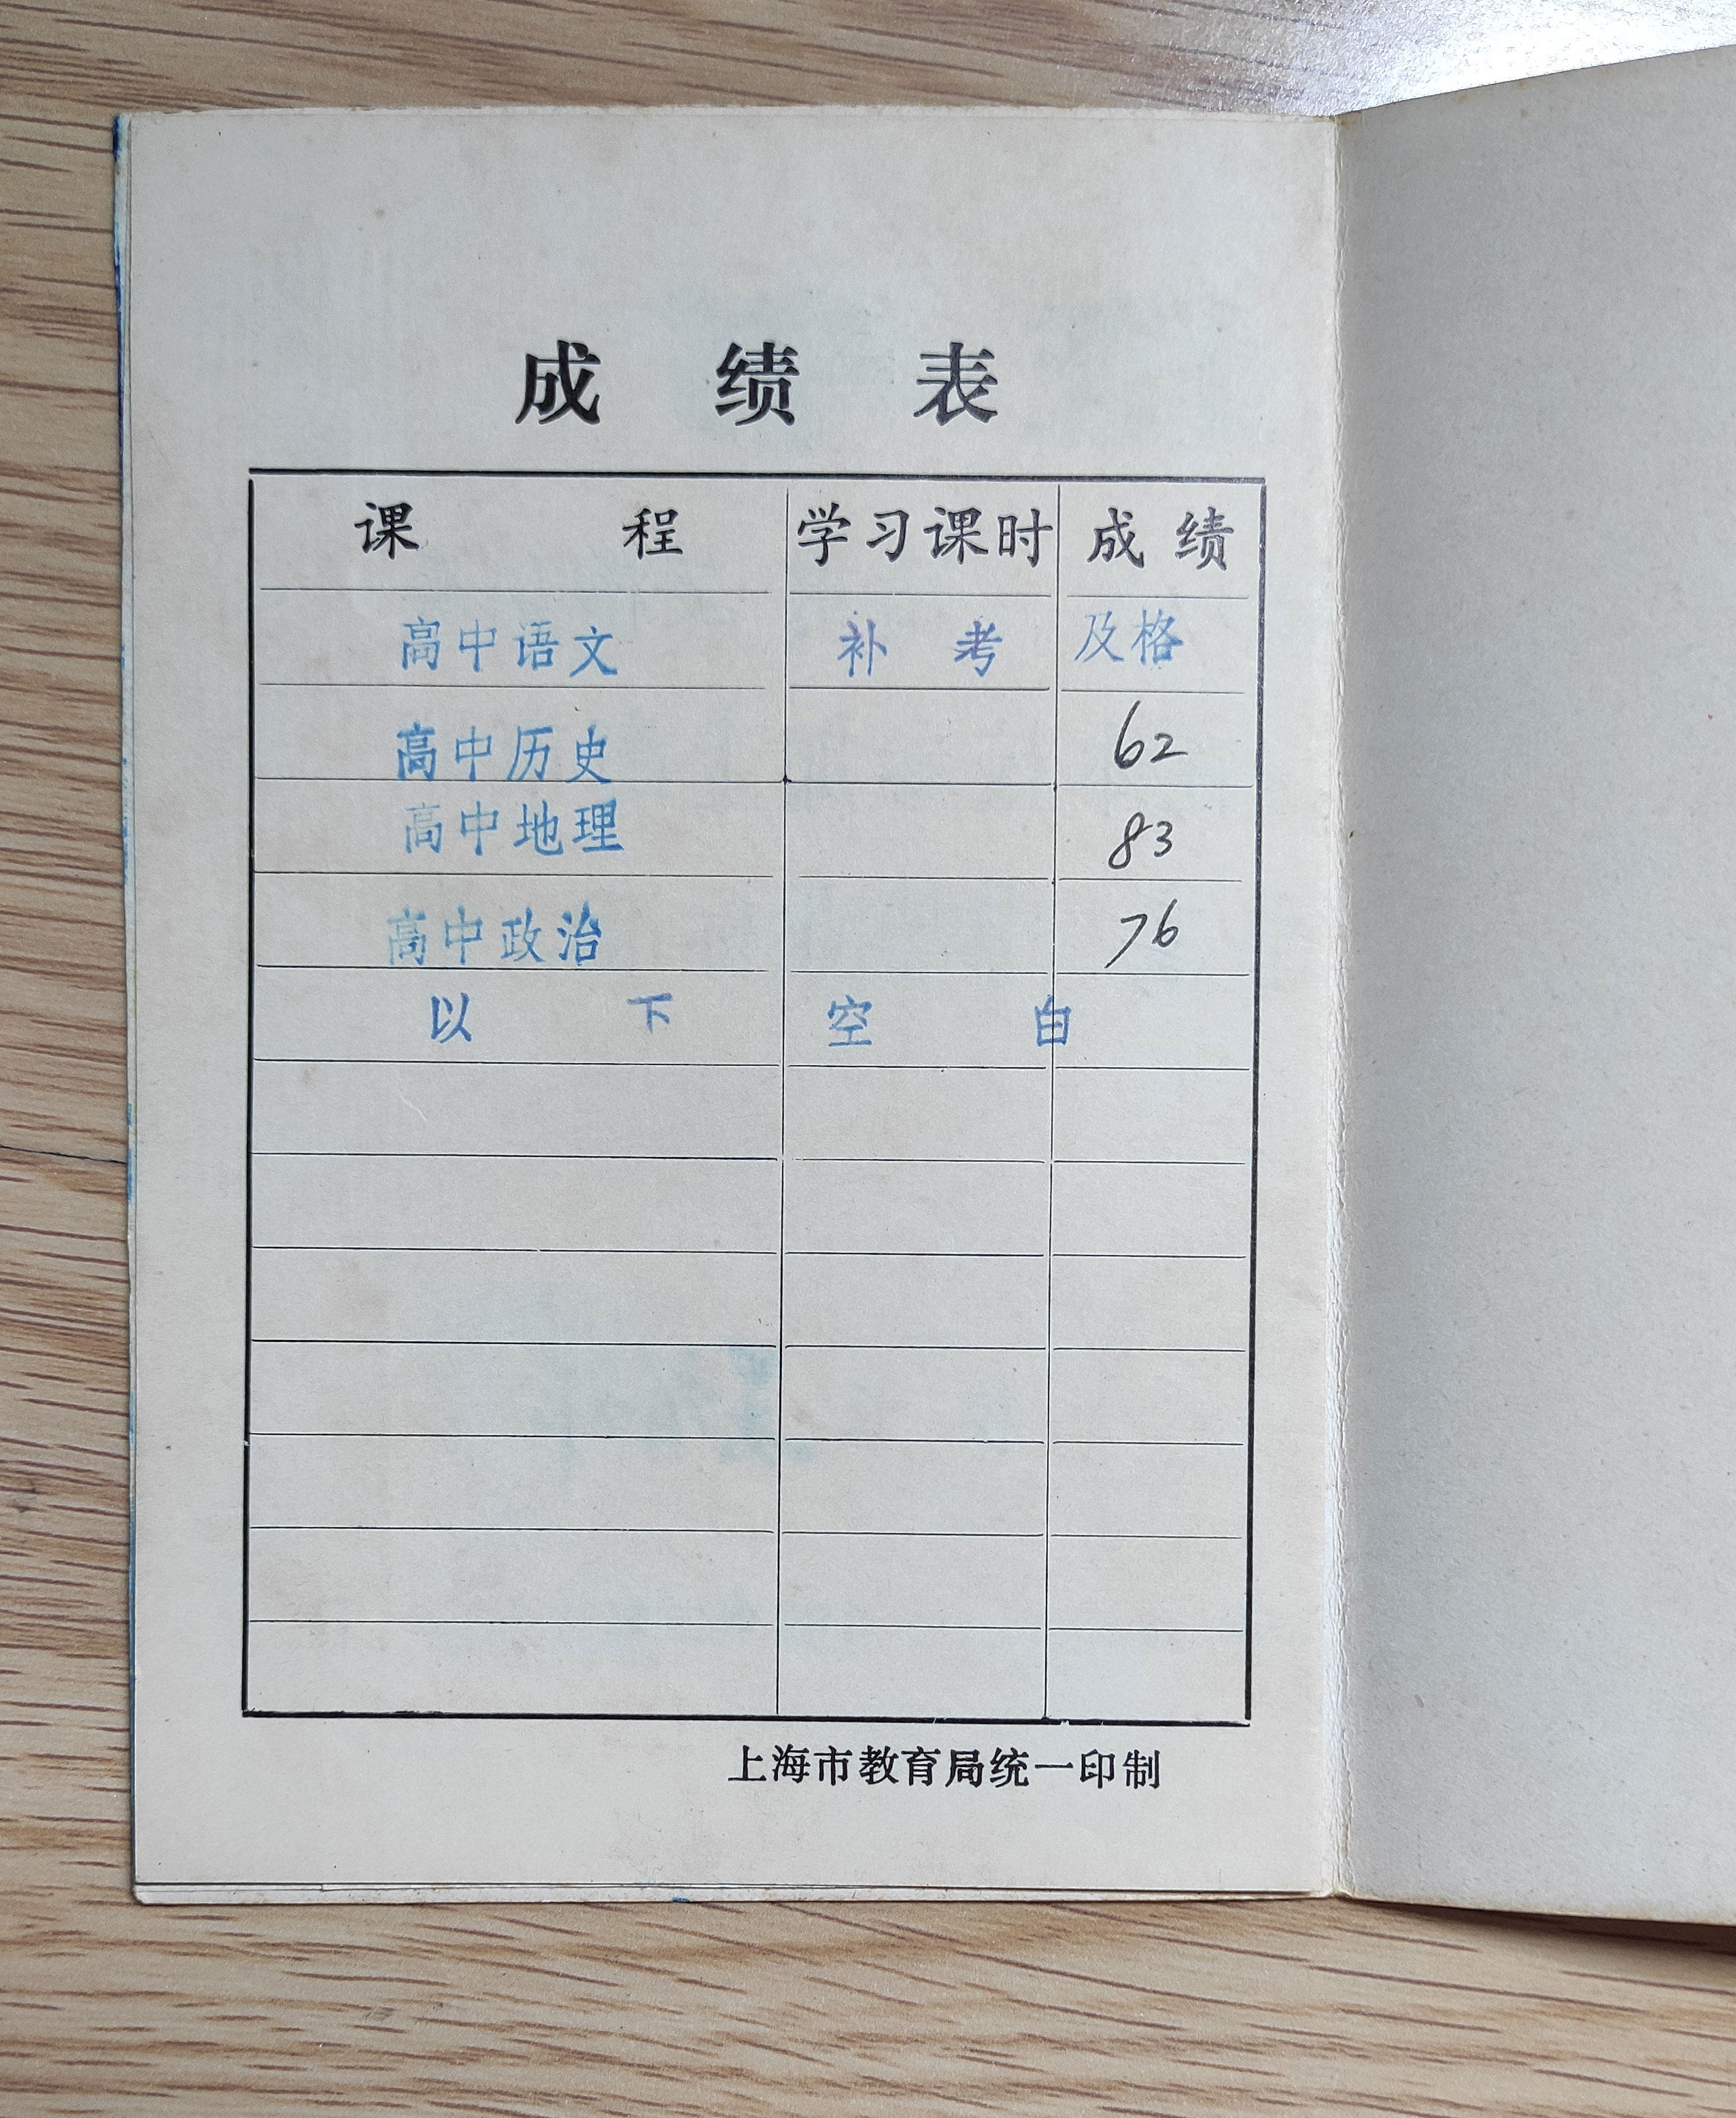 成绩表
课程 学习课时 成绩
高中语文 补考 及格
高中历史 62
高中地理 83
高中政治 76
以下空白
上海市教育局统一印制